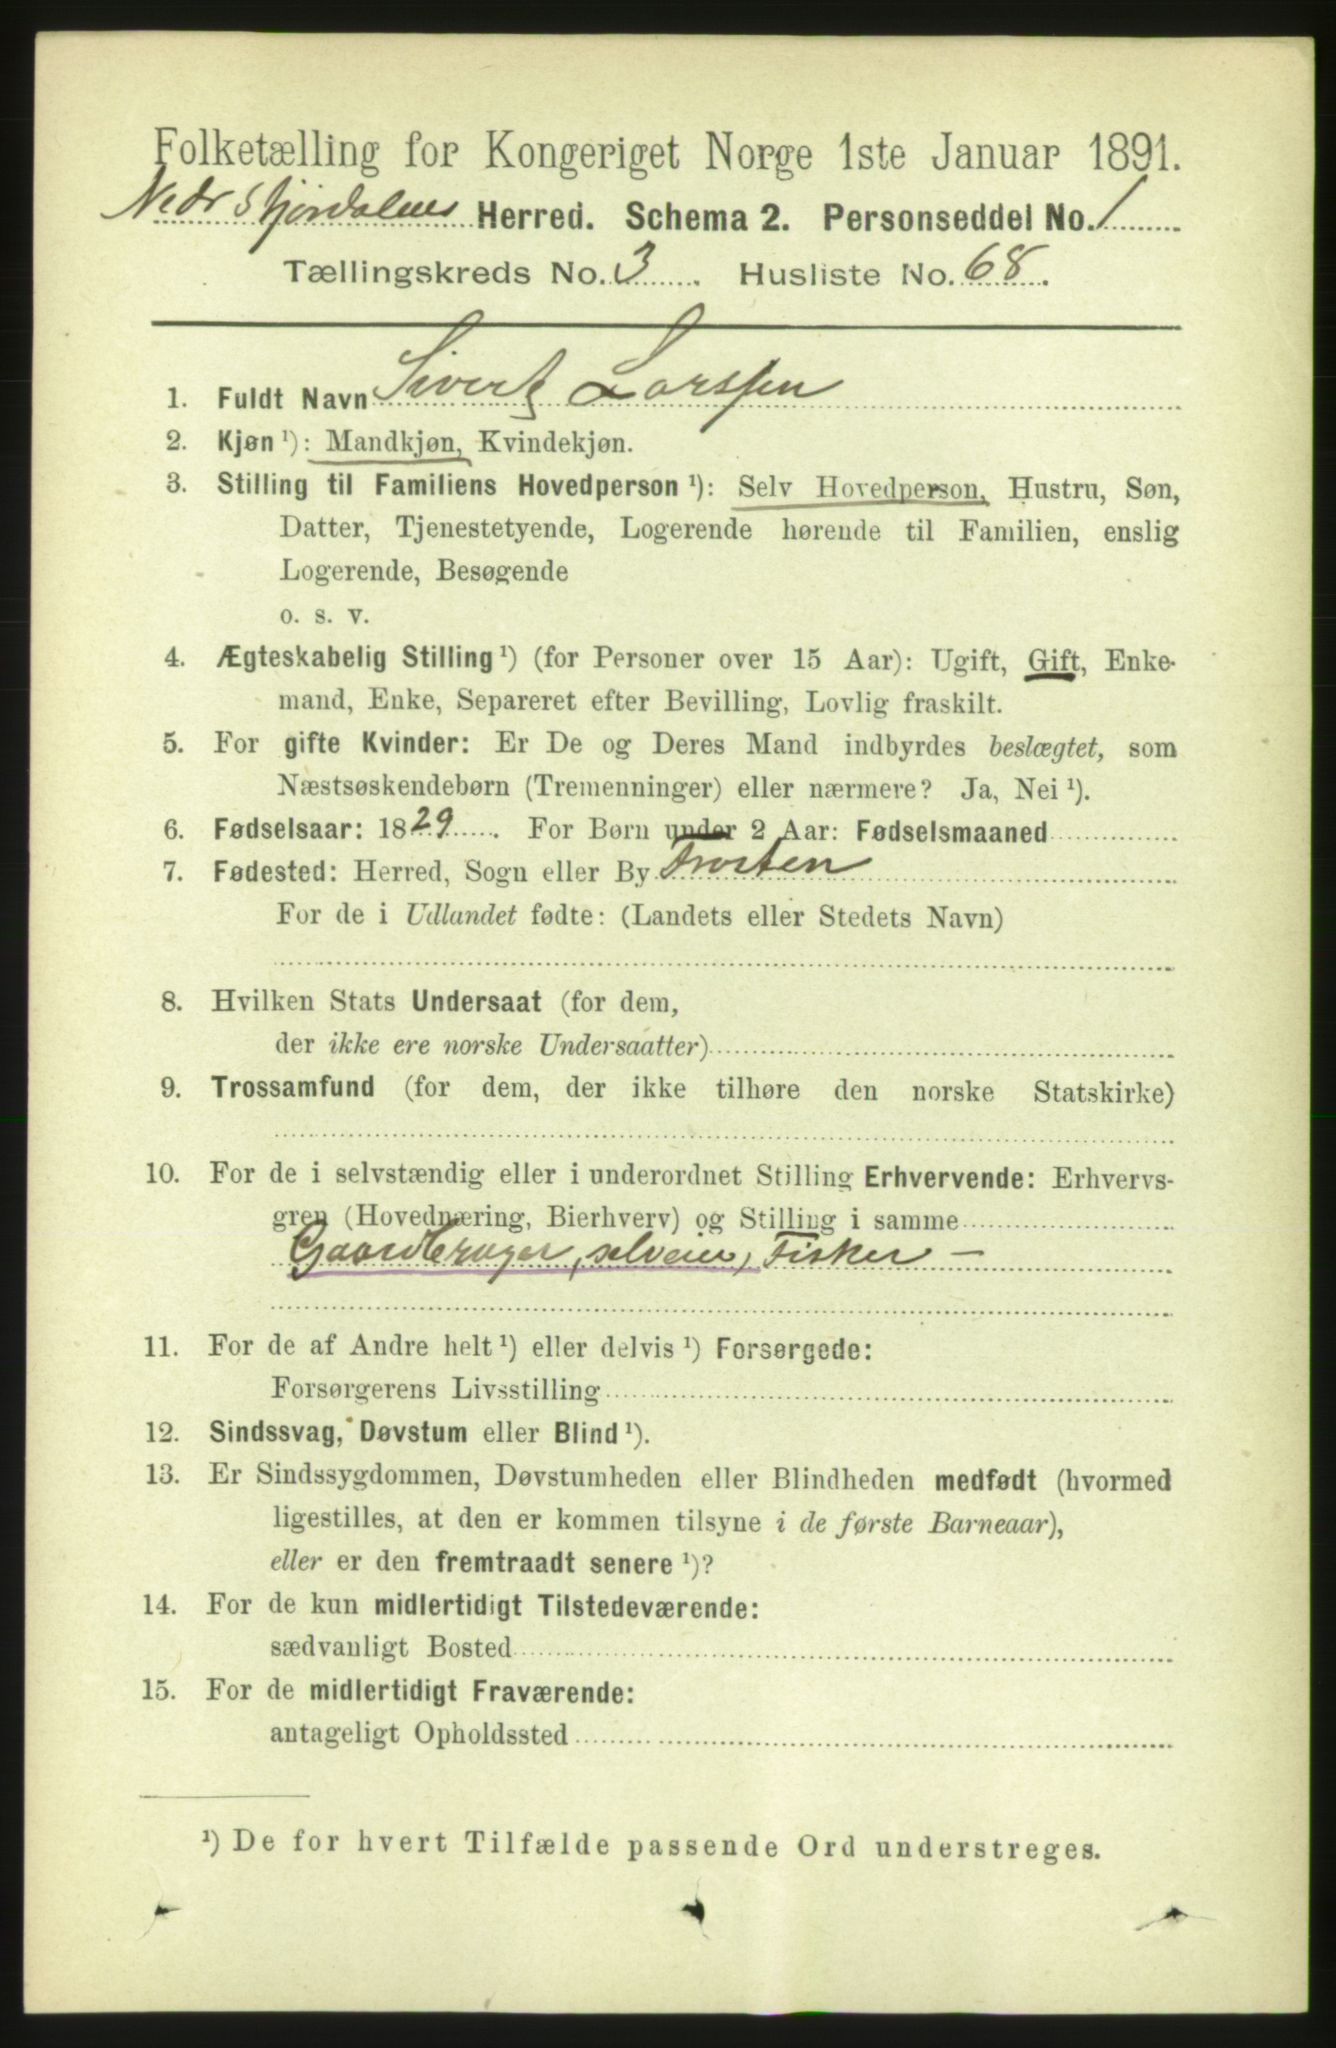 Folketælling for Kongeriget Norge 1ste Januar 1891.
Nedr Stjørdalens Herred. Schema 2. Personseddel No. 1
Tællingskreds No. 3. Husliste No. 68.
1. Fuldt Navn Sivert Larssen
2. Kjøn ¹): Mandkjøn, Kvindekjøn.
3. Stilling til Familiens Hovedperson ¹): Selv Hovedperson, Hustru, Søn,
Datter, Tjenestetyende, Logerende hørende til Familien, enslig
Logerende, Besøgende
o. s. v.
4. Ægteskabelig Stilling ¹) (for Personer over 15 Aar): Ugift, Gift, Enke-
mand, Enke, Separeret efter Bevilling, Lovlig fraskilt.
5. For gifte Kvinder: Er De og Deres Mand indbyrdes beslægtet, som
Næstsøskendebørn (Tremenninger) eller nærmere? Ja, Nei ¹).
6. Fødselsaar: 1829. For Børn under 2 Aar: Fødselsmaaned
7. Fødested: Herred, Sogn eller By Frosten
For de i Udlandet fødte: (Landets eller Stedets Navn)
8. Hvilken Stats Undersaat (for dem,
der ikke ere norske Undersaatter)
9. Trossamfund (for dem, der ikke tilhøre den norske Statskirke)
10. For de i selvstændig eller i underordnet Stilling Erhvervende: Erhvervs-
gren (Hovednæring, Bierhverv) og Stilling i samme
Gaardbruger, selveier, Fisker —
11. For de af Andre helt ¹) eller delvis ¹) Forsørgede:
Forsørgerens Livsstilling
12. Sindssvag, Døvstum eller Blind ¹).
13. Er Sindssygdommen, Døvstumheden eller Blindheden medfødt (hvormed
ligestilles, at den er kommen tilsyne i de første Barneaar),
eller er den fremtraadt senere ¹)?
14. For de kun midlertidigt Tilstedeværende:
sædvanligt Bosted
15. For de midlertidigt Fraværende:
antageligt Opholdssted
¹) De for hvert Tilfælde passende Ord understreges.